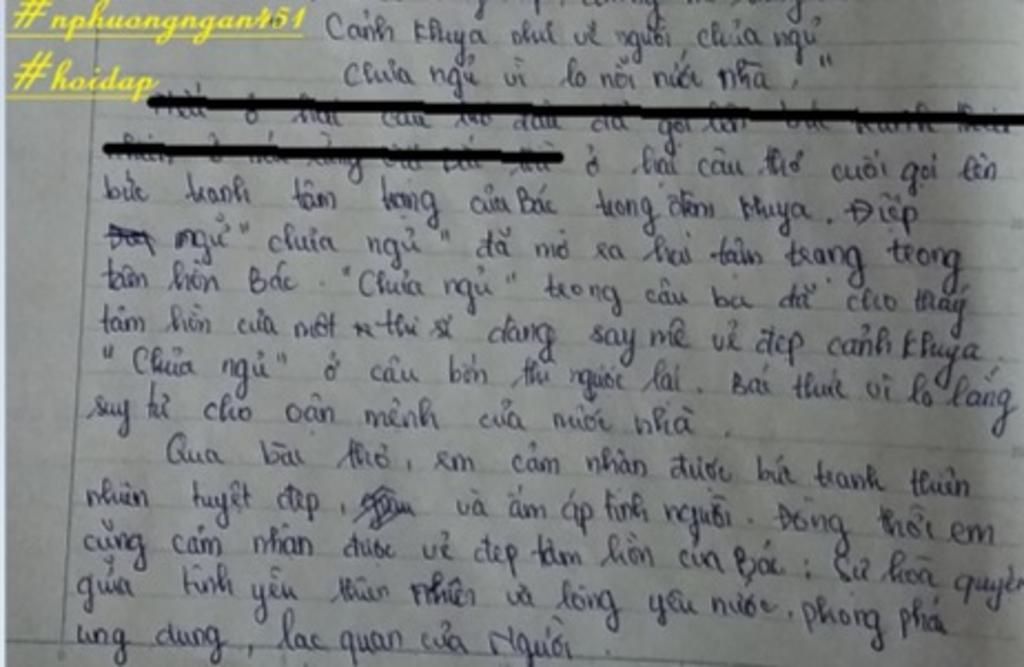 #nphuongngan451
Cảnh khuya như vẽ người chưa ngủ
#hoidap
Chưa ngủ vì lo nỗi nước nhà."
ở hai câu thơ cuối gợi lên
bức tranh tâm trạng của Bác trong đêm khuya. Điệp
ngữ "chưa ngủ" đã mở ra hai tâm trạng trong
tâm hồn Bác. "Chưa ngủ" trong câu ba đã cho thấy
tâm hồn của một thi sĩ đang say mê vẻ đẹp cảnh khuya.
"Chưa ngủ" ở câu bốn thì ngược lại. Bác thức vì lo lắng
suy tư cho vận mệnh của nước nhà.
Qua bài thơ, em cảm nhận được bức tranh thiên
nhiên tuyệt đẹp, và ấm áp tình người. Đồng thời em
cũng cảm nhận được vẻ đẹp tâm hồn của Bác: Sự hoà quyện
giữa tình yêu thiên nhiên và lòng yêu nước, phong phá
ung dung, lạc quan của Người.